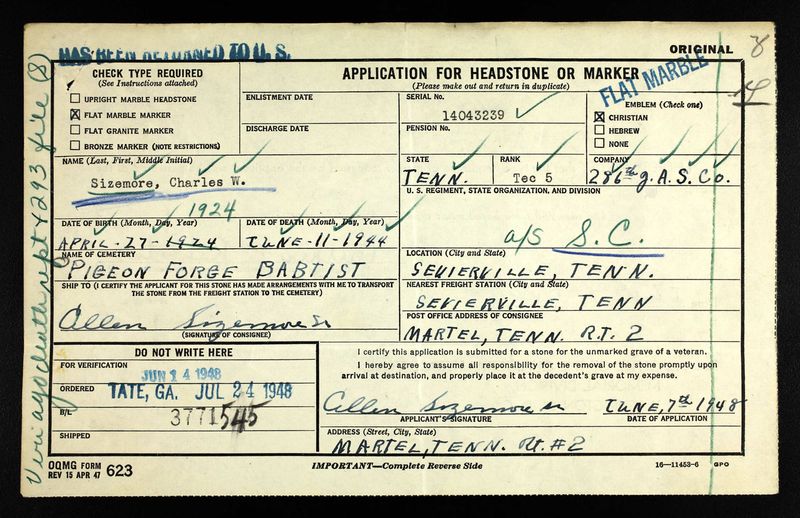 HAS BEEN RETURNED TO U. S.
ORIGINAL
8
14
CHECK TYPE REQUIRED
(See Instructions attached)
UPRIGHT MARBLE HEADSTONE
X FLAT MARBLE MARKER
FLAT GRANITE MARKER
BRONZE MARKER (NOTE RESTRICTIONS)
APPLICATION FOR HEADSTONE OR MARKER
(Please make out and return in duplicate)
FLAT MARBLE
ENLISTMENT DATE
DISCHARGE DATE
SERIAL No.
14043239
PENSION No.
EMBLEM (Check one)
X CHRISTIAN
HEBREW
NONE
NAME (Last, First, Middle Initial)
Sizemore, Charles W.
STATE
TENN.
RANK
Tec 5
COMPANY
286th J.A.S.Co.
U. S. REGIMENT, STATE ORGANIZATION, AND DIVISION
a/s S.C.
1924
DATE OF BIRTH (Month, Day, Year)
APRIL-27-1924
DATE OF DEATH (Month, Day, Year)
JUNE-11-1944
NAME OF CEMETERY
PIGEON FORGE BABTIST
LOCATION (City and State)
SEVIERVILLE, TENN.
SHIP TO (I CERTIFY THE APPLICANT FOR THIS STONE HAS MADE ARRANGEMENTS WITH ME TO TRANSPORT
THE STONE FROM THE FREIGHT STATION TO THE CEMETERY)
Allen Sizemore Sr
(SIGNATURE OF CONSIGNEE)
NEAREST FREIGHT STATION (City and State)
SEVIERVILLE, TENN
POST OFFICE ADDRESS OF CONSIGNEE
MARTEL, TENN. RT. 2
DO NOT WRITE HERE
FOR VERIFICATION
JUN 14 1948
ORDERED
TATE, GA. JUL 24 1948
B/L
3771545
SHIPPED
I certify this application is submitted for a stone for the unmarked grave of a veteran.
I hereby agree to assume all responsibility for the removal of the stone promptly upon
arrival at destination, and properly place it at the decedent's grave at my expense.
Allen Sizemore Sr
APPLICANT'S SIGNATURE
JUNE, 7th 1948
DATE OF APPLICATION
ADDRESS (Street, City, State)
MARTEL, TENN. Rt. #2
OQMG FORM
REV 15 APR 47 623
IMPORTANT—Complete Reverse Side
16—11453-6 GPO
death rept & 293 file (8)